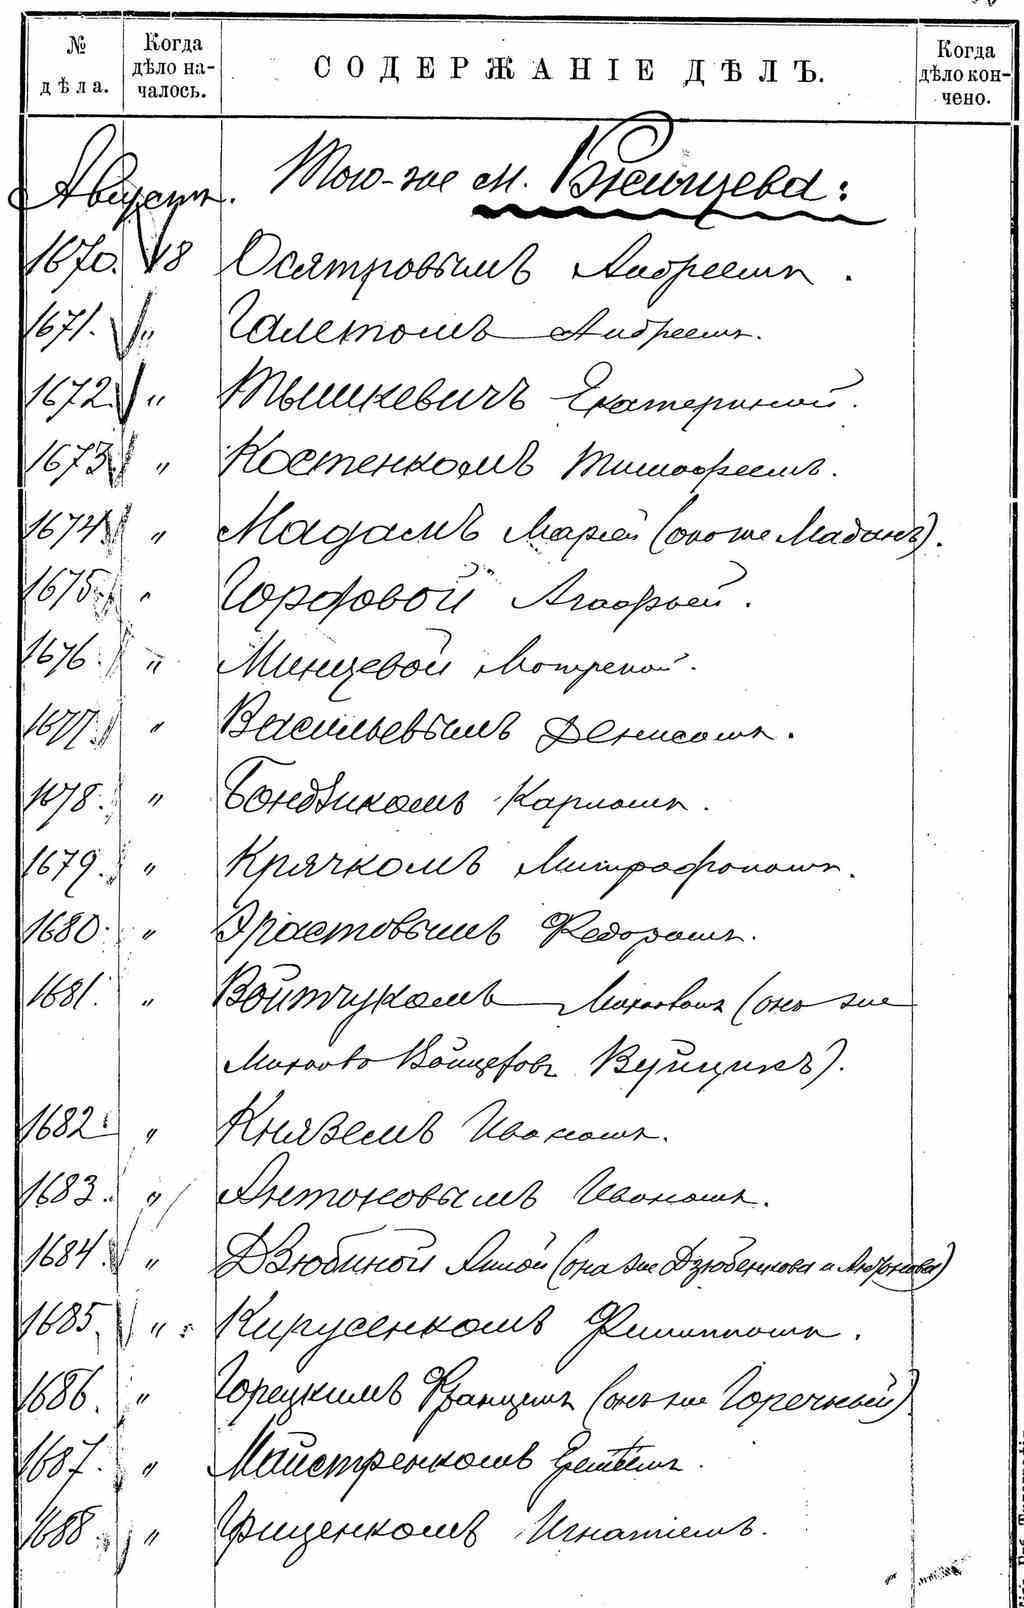 № дѣла.
Когда дѣло началось.
СОДЕРЖАНІЕ ДѢЛЪ.
Когда дѣло кончено.
Августъ. Того-же м. Бжищева:
1670. 18 Осятровымъ Андреемъ.
1671. " Галетомъ Андреемъ.
1672. " Тышкевичъ Екатериной.
1673 " Костенкомъ Тимофеемъ.
1674 " Мадамъ Маріей (онаже Маданъ).
1675 " Горфовой Агафьей.
1676. " Минцевой Мотреной.
1677. " Васильевымъ Денисомъ.
1678. " Бондикомъ Карпомъ.
1679. " Крячкомъ Митрофаномъ.
1680. " Эрастовымъ Федоромъ.
1681. " Войтчукомъ (онъ же
Вуйцикъ).
1682. " Княземъ Иваномъ.
1683. " Антоновымъ Иваномъ.
1684. " Дзюбиной Анной (она же Дзюбенкова и Антонова)
1685. " Кирусенкомъ Филиппомъ.
1686. " Горецкимъ Францемъ (онъ же Горечный)
1687. " Майстренкомъ
1688. " Гриценкомъ Игнатіемъ.